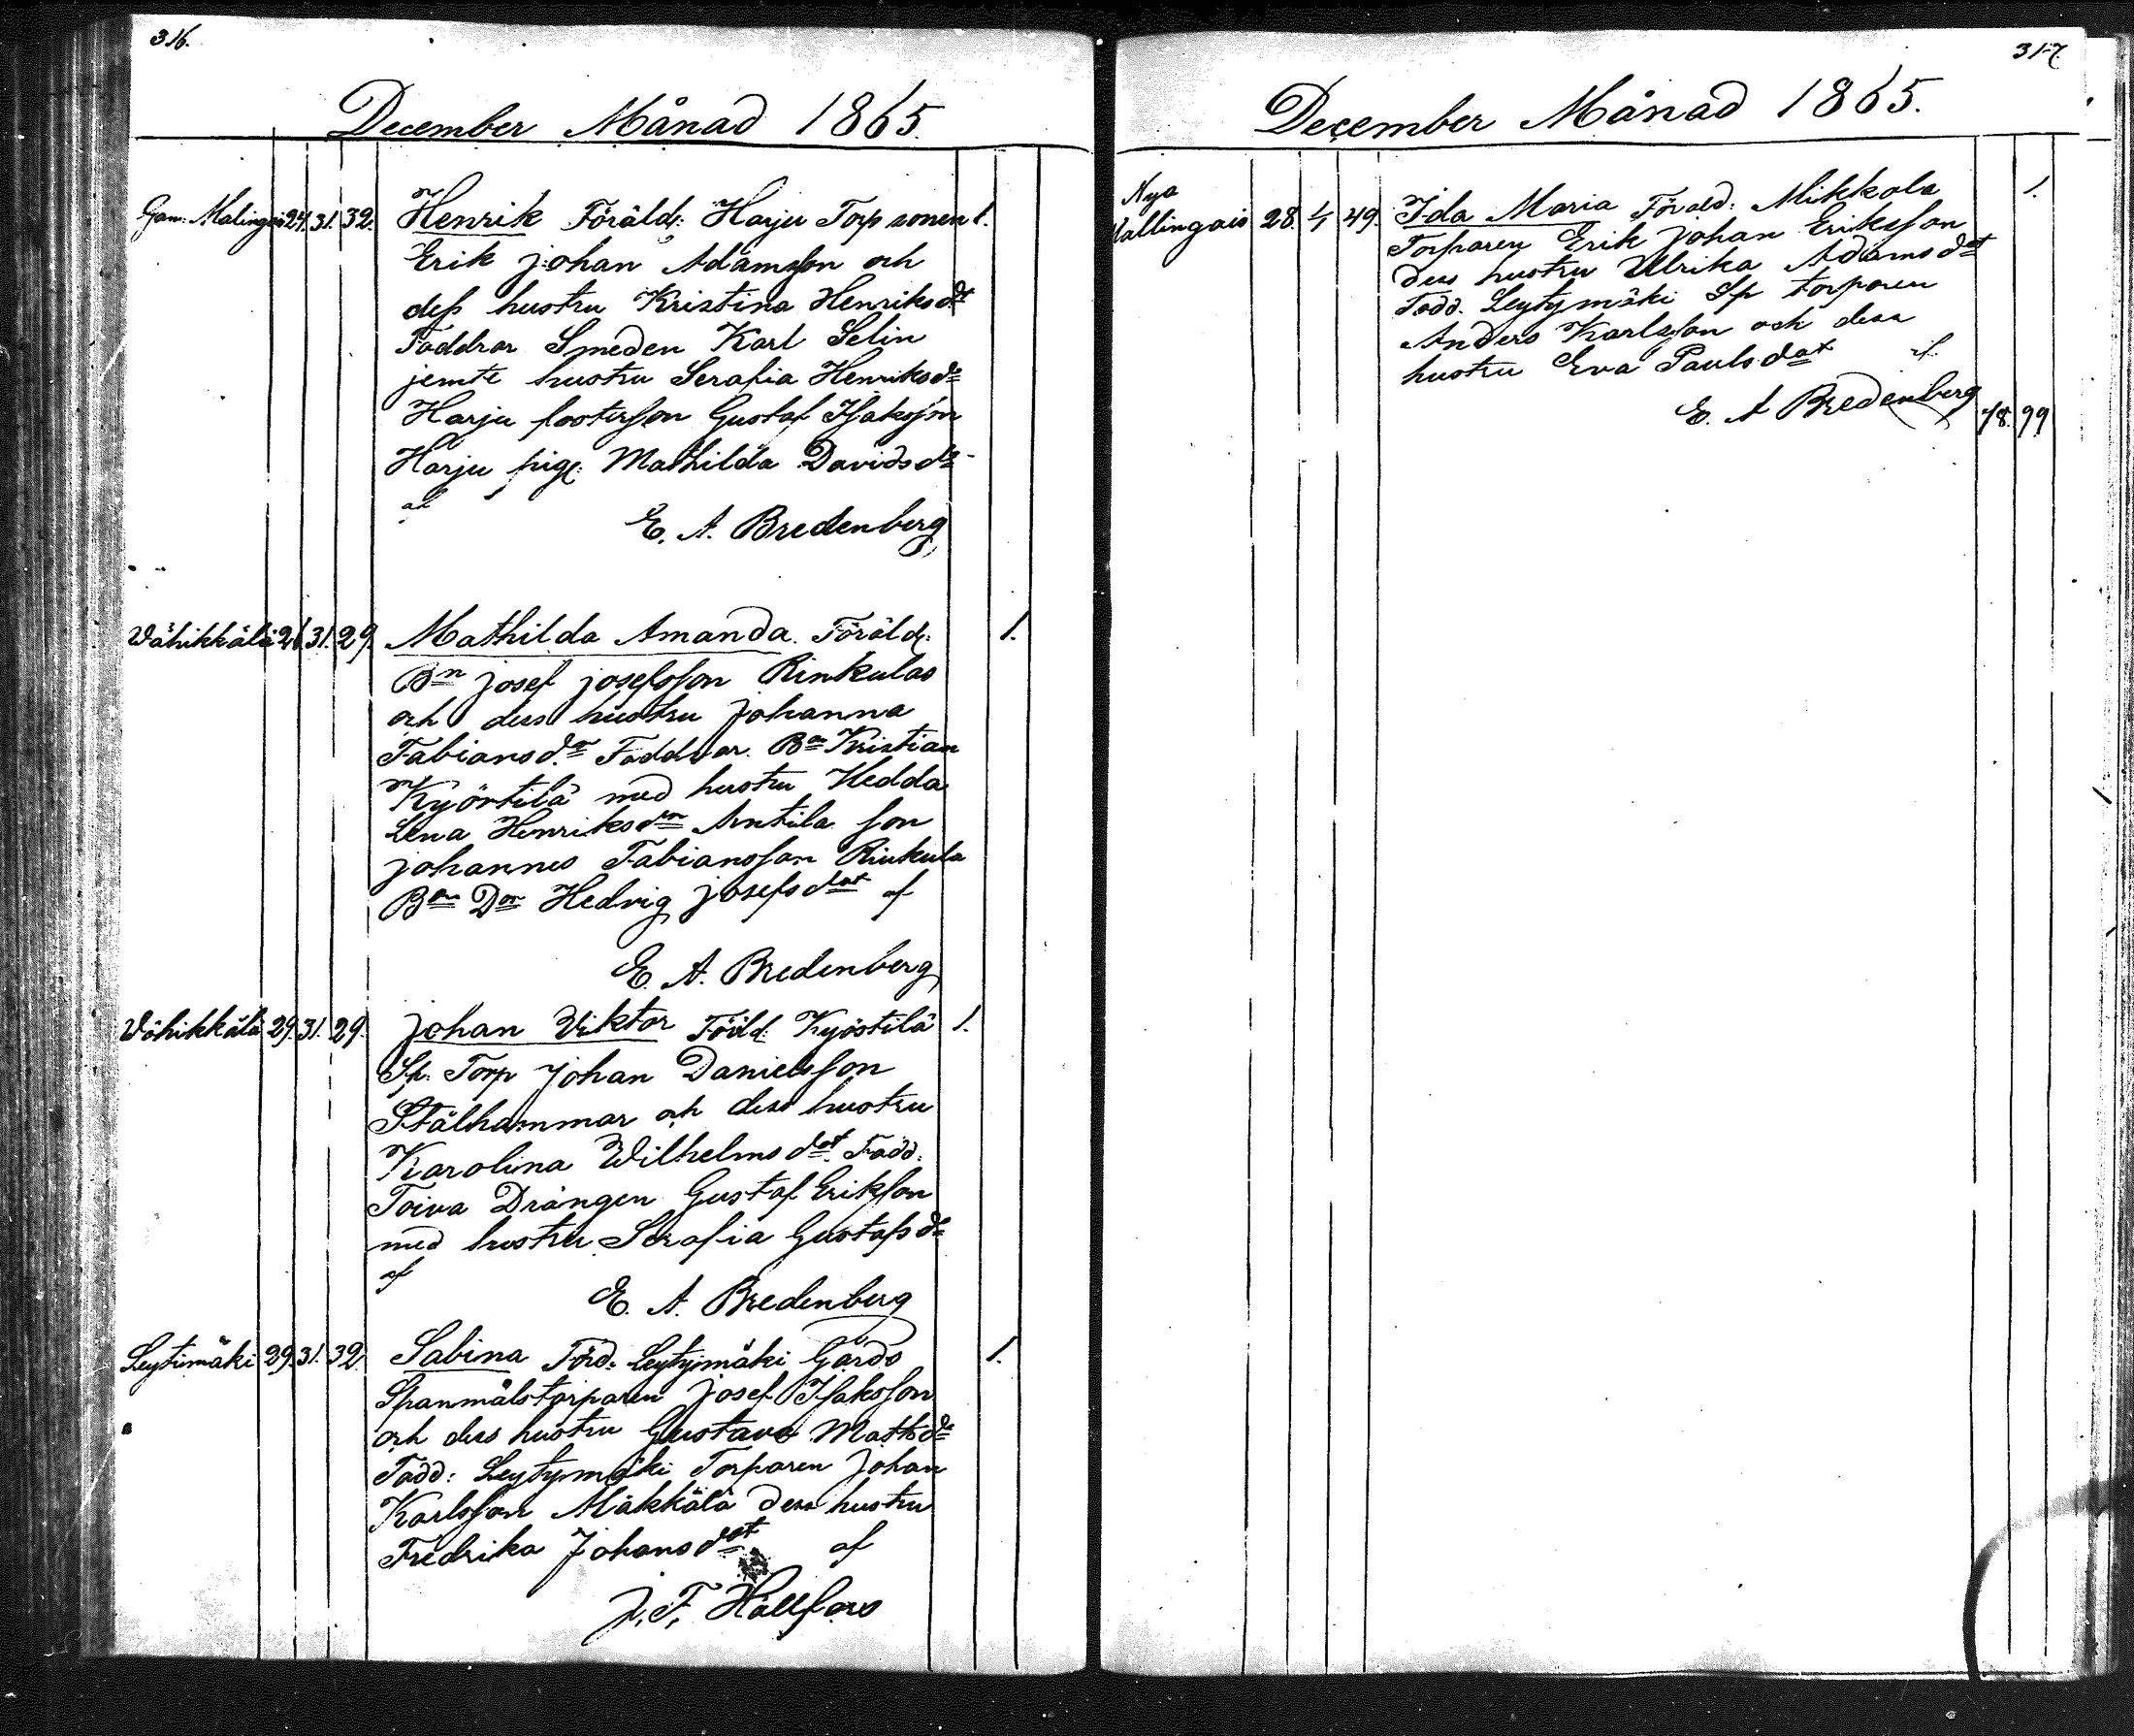 316.
December Månad 1865.
Gam: Malingais 24. 31. 32. Henrik Föräld: Harju Torp sonen 1.
Erik Johan Adamsson och
dess hustru Kristina Henriksdt
Faddrar Smeden Karl Selin
jemte hustru Serafia Henriksdr
Harju fosterson Gustaf Isaksson
Harju pig: Mathilda Davidsdr
af
E. A. Bredenberg
Wähikkälä 26 31. 29. Mathilda Amanda. Föräld: 1.
Bn Josef Josefsson Rinkulas
och dess hustru Johanna
Fabiansdr Faddrar. Bn Kristian
Kyöstilä med hustru Hedda
Lena Henriksdr Antila son
Johannes Fabiansson Rinkula
Bn Dr Hedvig Josefsdot af
E. A. Bredenberg
Wähikkälä 29. 31. 29. Johan Viktor Föäld: Kyöstilä 1.
Sp. Torp Johan Danielsson
Stålhammar och dess hustru
Karolina Wilhelmsdot Fadd:
Toiva Drängen Gustaf Eriksson
med hustru Serafia Gustafsdr
af
E. A. Bredenberg
Leytimäki 29. 31. 32. Sabina Förd: Leytymäki Gårds 1.
Spanmålstorparen Josef Isaksson
och dess hustru Gustava Mattsdr
Fadd: Leytymäki Torparen Johan
Karlsson Mäkkälä dess hustru
Fredrika Johansdot af
J. F. Hällfors
317.
December Månad 1865.
Nya
Mallingais 28. 1/1 49. Ida Maria Föräld: Mikkola 1.
Torparen Erik Johan Eriksson
dess hustru Ulrika Adamsdot
Fadd. Leytymäki Sp torparen
Anders Karlsson och dess
hustru Eva Paulsdot af
E. A Bredenberg
78. 99